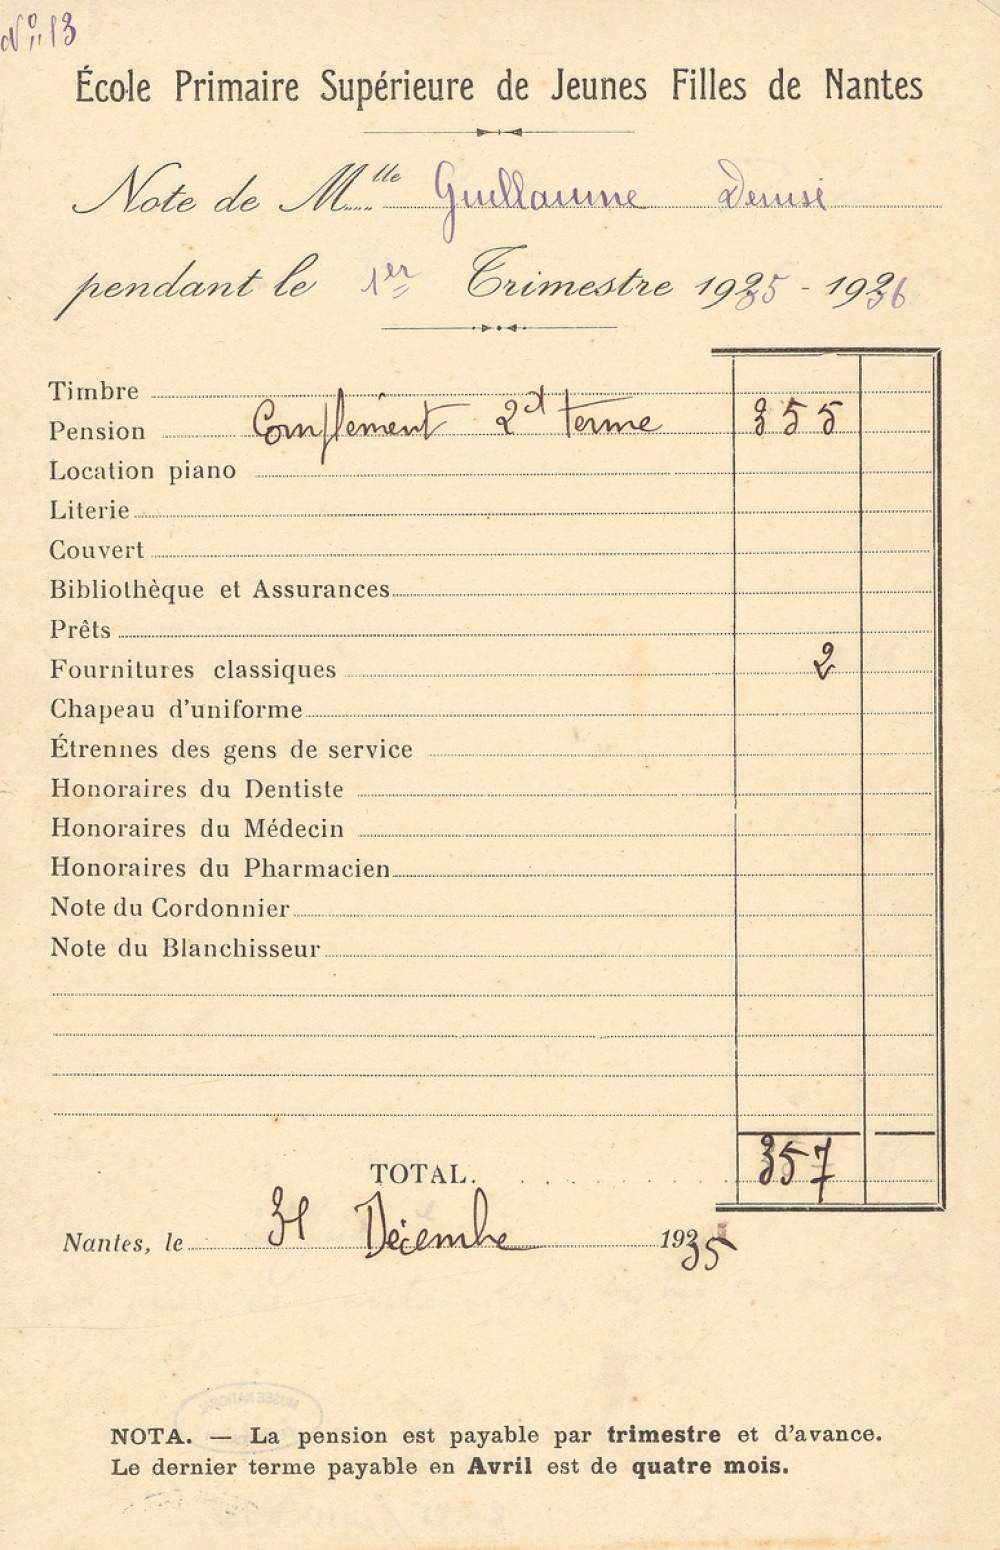 N° 13
École Primaire Supérieure de Jeunes Filles de Nantes
Note de Mlle Guillaume Denise
pendant le 1er Trimestre 1935 - 1936
Timbre
Pension Complément 2d terme 355
Location piano
Literie
Couvert
Bibliothèque et Assurances
Prêts
Fournitures classiques 2
Chapeau d'uniforme
Étrennes des gens de service
Honoraires du Dentiste
Honoraires du Médecin
Honoraires du Pharmacien
Note du Cordonnier
Note du Blanchisseur
TOTAL. 357
Nantes, le 31 Décembre 1935
NOTA. — La pension est payable par trimestre et d'avance.
Le dernier terme payable en Avril est de quatre mois.